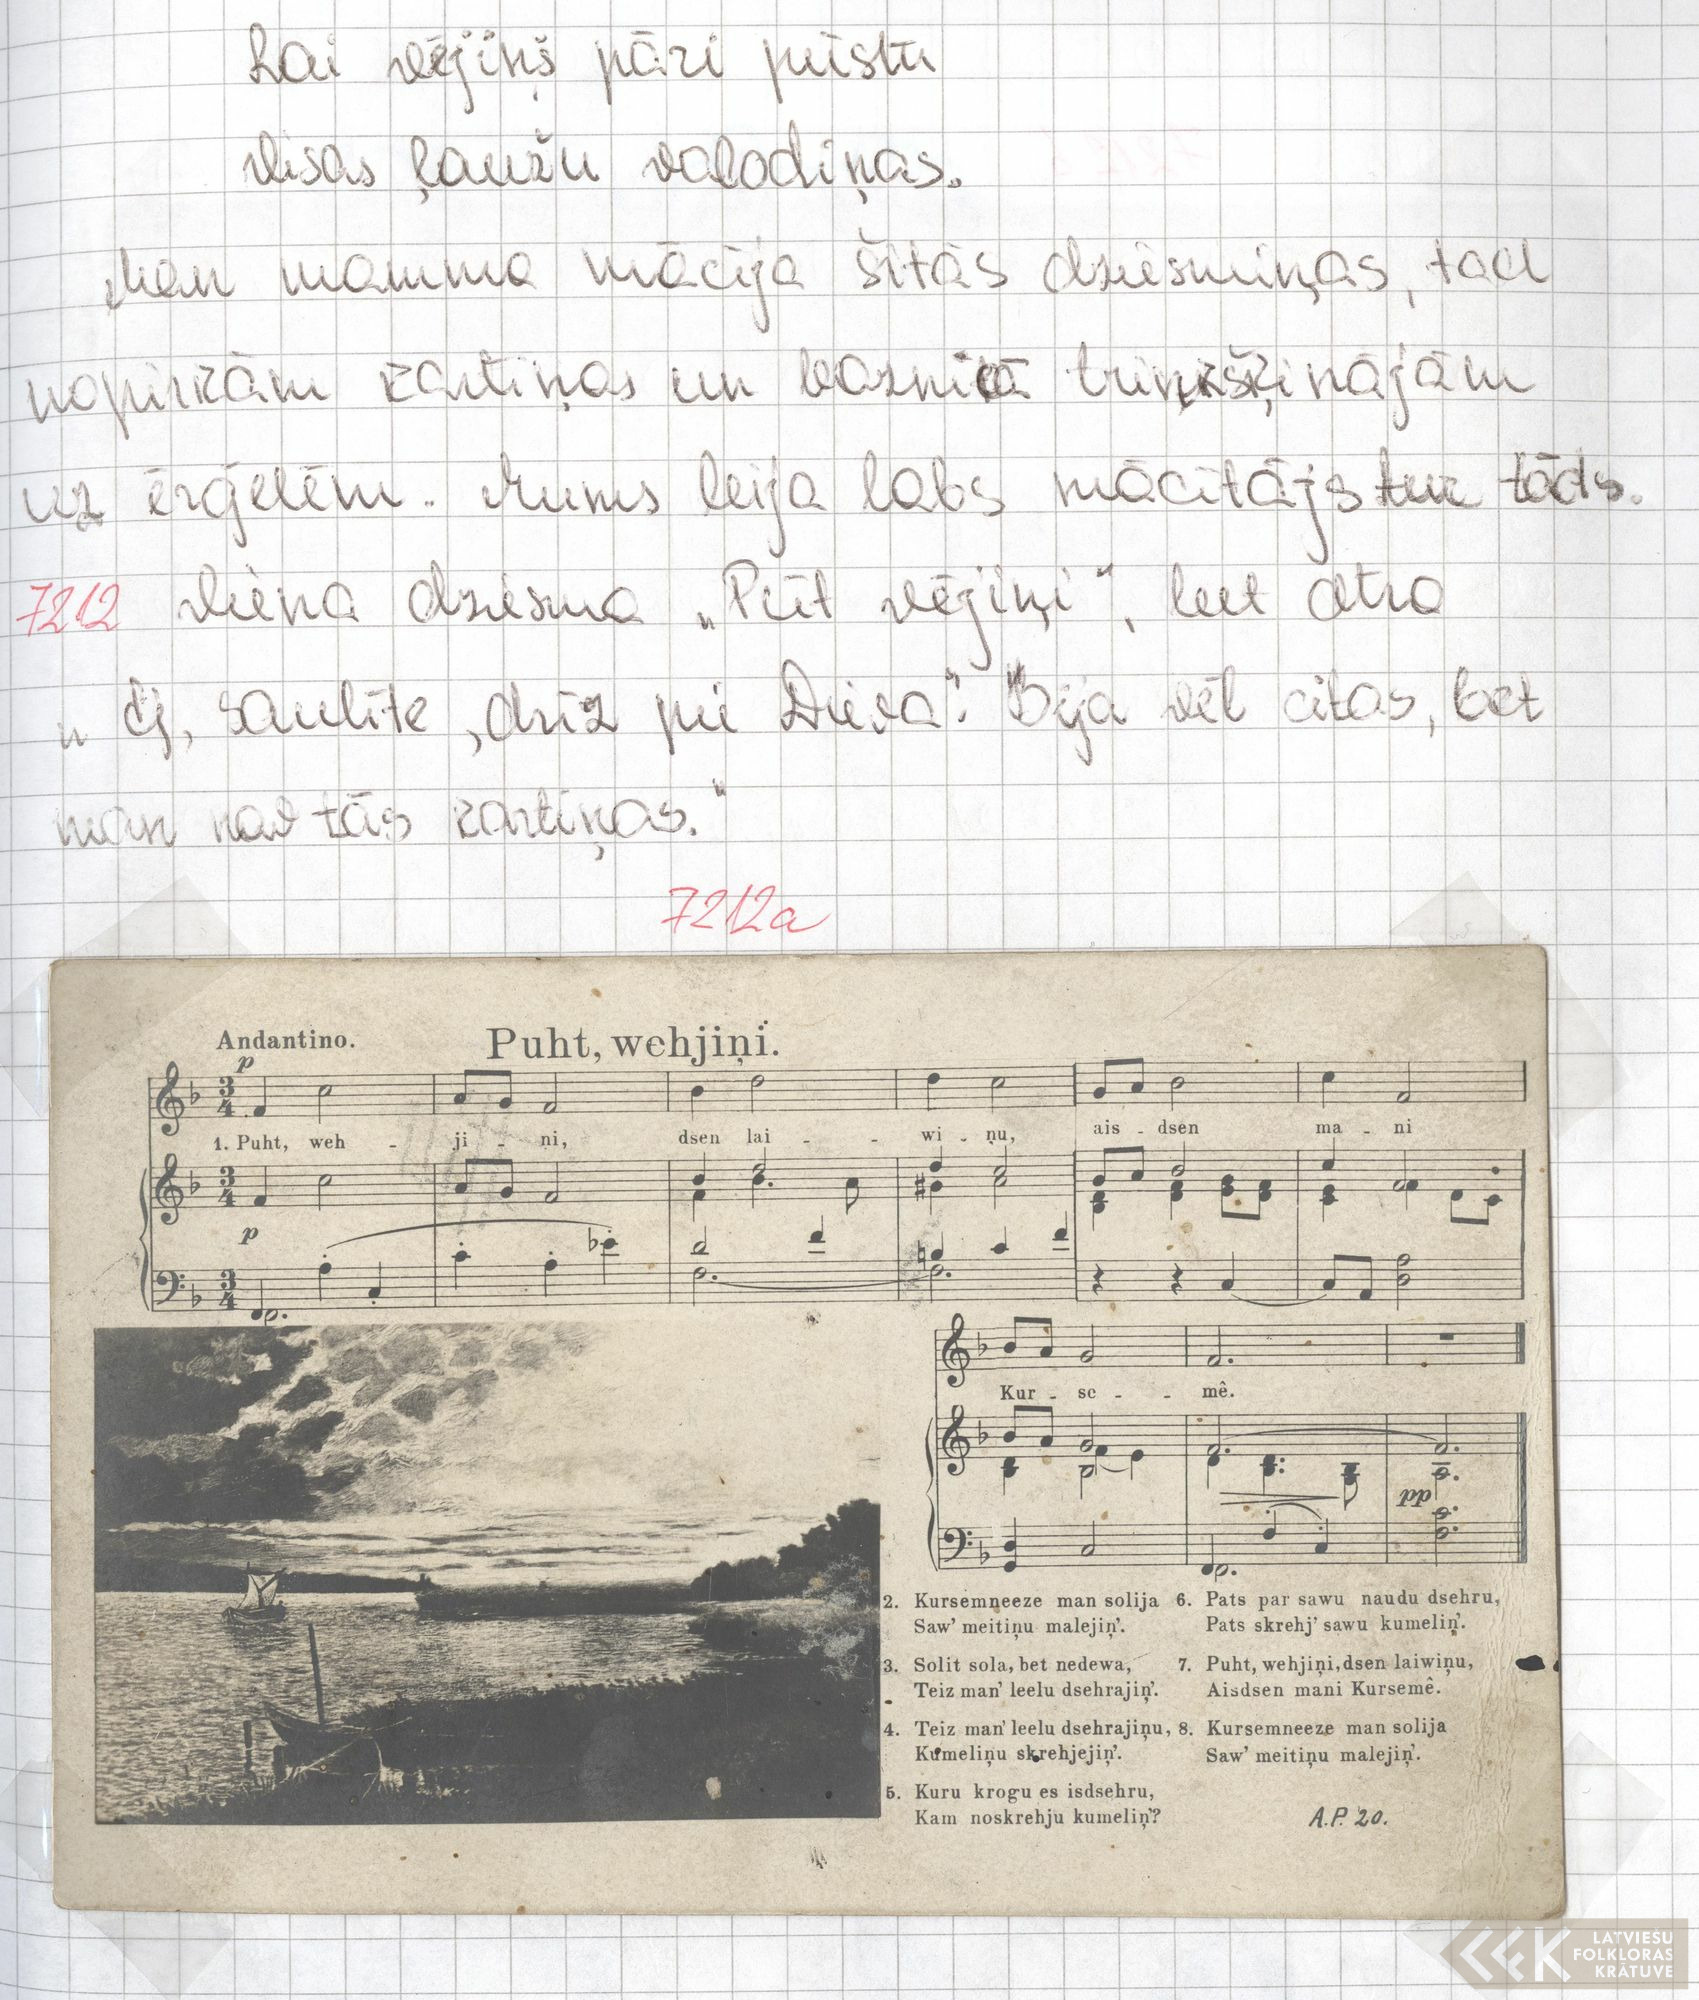 Lai vējiņš pāri pūstu
Visas ļaužu valodiņas.
Man mamma mācīja šitās dziesmiņas, tad
nopirkām kartiņas un baznīcā trinkšķinājām
uz ērģelēm. Mums bija labs mācītājs tur tāds.
7212 Viena dziesma „Pūt vējiņi", bet otra
„Ej, saulīte, drīz pie Dieva". Bija vēl citas, bet
man nav tās kartiņas."
7212a
Andantino. Puht, wehjiņi.
p
1. Puht, weh - ji - ni, dsen lai - wi - ņu, ais - dsen ma - ni
p
Kur - se - mê.
pp
2. Kursemneeze man solija
Saw' meitiņu malejiņ'.
3. Solit sola, bet nedewa,
Teiz man' leelu dsehrajiņ'.
4. Teiz man' leelu dsehrajiņu,
Kumeliņu skrehjejiņ'.
5. Kuru krogu es isdsehru,
Kam noskrehju kumeliņ'?
6. Pats par sawu naudu dsehru,
Pats skrehj' sawu kumeliņ'.
7. Puht, wehjiņi, dsen laiwiņu,
Aisdsen mani Kursemê.
8. Kursemneeze man solija
Saw' meitiņu malejiņ'.
A.P. 20.
LATVIEŠU
FOLKLORAS
KRĀTUVE